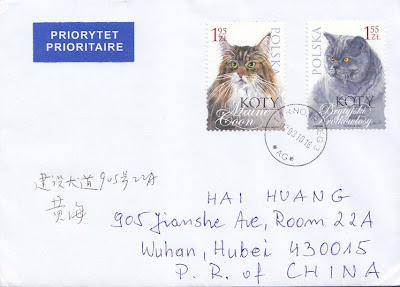 PRIORYTET
PRIORITAIRE
1,95 ZŁ
POLSKA
KOTY
Maine
Coon
1,55 ZŁ
POLSKA
KOTY
Brytyjski
Krótkowłosy
*AG*
建设大道905号22A
黄海
HAI HUANG
905 Jianshe Ave, Room 22A
Wuhan, Hubei 430015
P. R. of CHINA